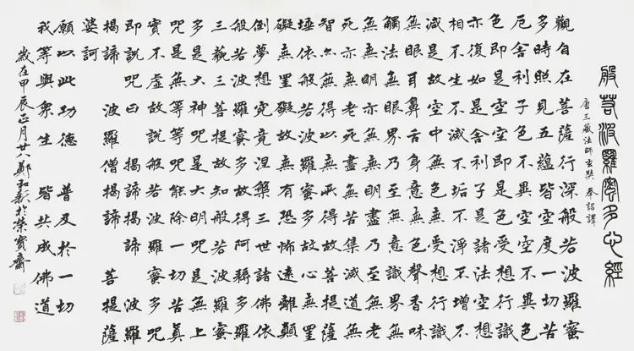 般若波羅蜜多心經
唐三藏法師玄奘 奉詔譯
觀自在菩薩行深般若波羅蜜
多時照見五蘊皆空度一切苦
厄舍利子色不異空空不異色
色即是空空即是色受想行識
亦復如是舍利子是諸法空
相不生不滅不垢不淨不增不
減是故空中無色無受想行識
無眼耳鼻舌身意無色聲香味
觸法無眼界乃至無意識界無
無明亦無無明盡乃至無老
死亦無老死盡無苦集滅道無
智亦無得以無所得故菩提薩
埵依般若波羅蜜多故心無罣
礙無罣礙故無有恐怖遠離顛
倒夢想究竟涅槃三世諸佛依
般若波羅蜜多故得阿耨多羅
三藐三菩提故知般若波羅蜜
多是大神咒是大明咒是無上
咒是無等等咒能除一切苦真
實不虛故說般若波羅蜜多咒
即說咒曰 揭諦揭諦 波羅
揭諦 波羅僧揭諦 菩提薩
婆訶
願以此功德 普及於一切
我等與眾生 皆共成佛道
歲在甲辰正月廿八鄭和於榮寶齋